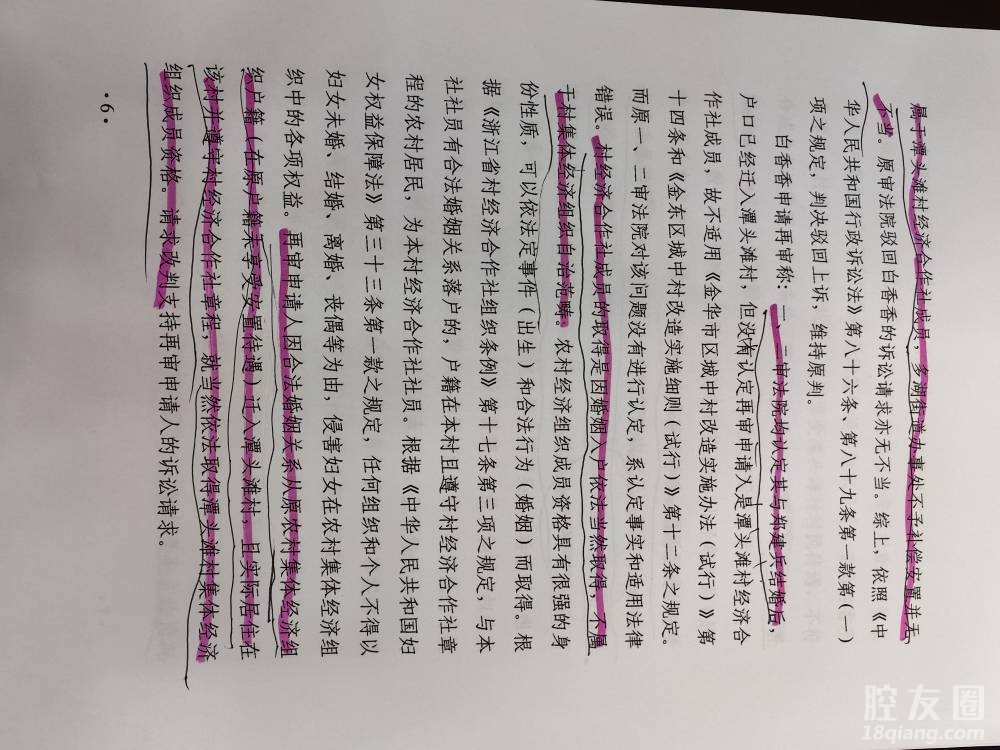 属于潭头滩村经济合作社成员，多湖街道办事处不予补偿安置并无
不当。原审法院驳回白香香的诉讼请求亦无不当。综上，依照《中
华人民共和国行政诉讼法》第八十六条、第八十九条第一款第（一）
项之规定，判决驳回上诉，维持原判。
白香香申请再审称：一、二审法院均认定其与郑建丘结婚后，
户口已经迁入潭头滩村，但没有认定再审申请人是潭头滩村经济合
作社成员，故不适用《金华市区城中村改造实施办法（试行）》第
十四条和《金东区城中村改造实施细则（试行）》第十二条之规定。
而原一、二审法院对该问题没有进行认定，系认定事实和适用法律
错误。村经济合作社成员的取得是因婚姻入户依法当然取得，不属
于村集体经济组织自治范畴。农村经济组织成员资格具有很强的身
份性质，可以依法定事件（出生）和合法行为（婚姻）而取得。根
据《浙江省村经济合作社组织条例》第十七条第三项之规定，与本
社社员有合法婚姻关系落户的，户籍在本村且遵守村经济合作社章
程的农村居民，为本村经济合作社社员。根据《中华人民共和国妇
女权益保障法》第三十三条第一款之规定，任何组织和个人不得以
妇女未婚、结婚、离婚、丧偶等为由，侵害妇女在农村集体经济组
织中的各项权益。再审申请人因合法婚姻关系从原农村集体经济组
织户籍（在原户籍未享受安置待遇）迁入潭头滩村，且实际居住在
该村并遵守村经济合作社章程，就当然依法取得潭头滩村集体经济
组织成员资格。请求改判支持再审申请人的诉讼请求。
·6·
腔友圈
18qiang.com